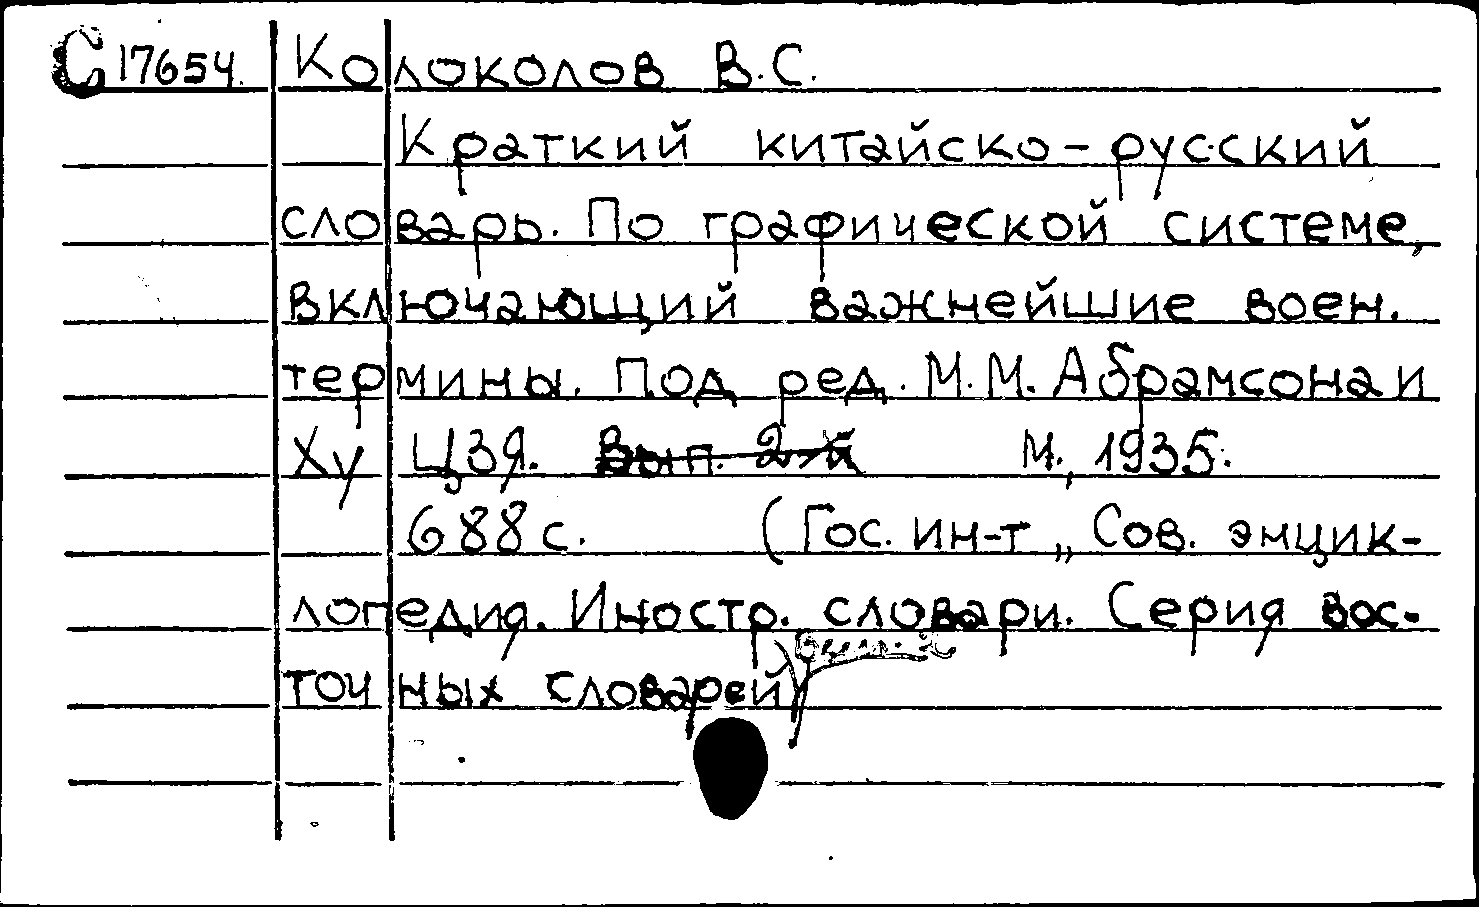 С 17654. Колоколов В.С.
Краткий китайско-русский
словарь. По графической системе,
включающий важнейшие воен.
термины. Под ред. М.М. Абрамсона и
Ху Цзя. Вып. 2-й М., 1935.
688 с. (Гос. ин-т „Сов. энцик-
лопедия. Иностр. словари. Серия вос-
точных словарей)